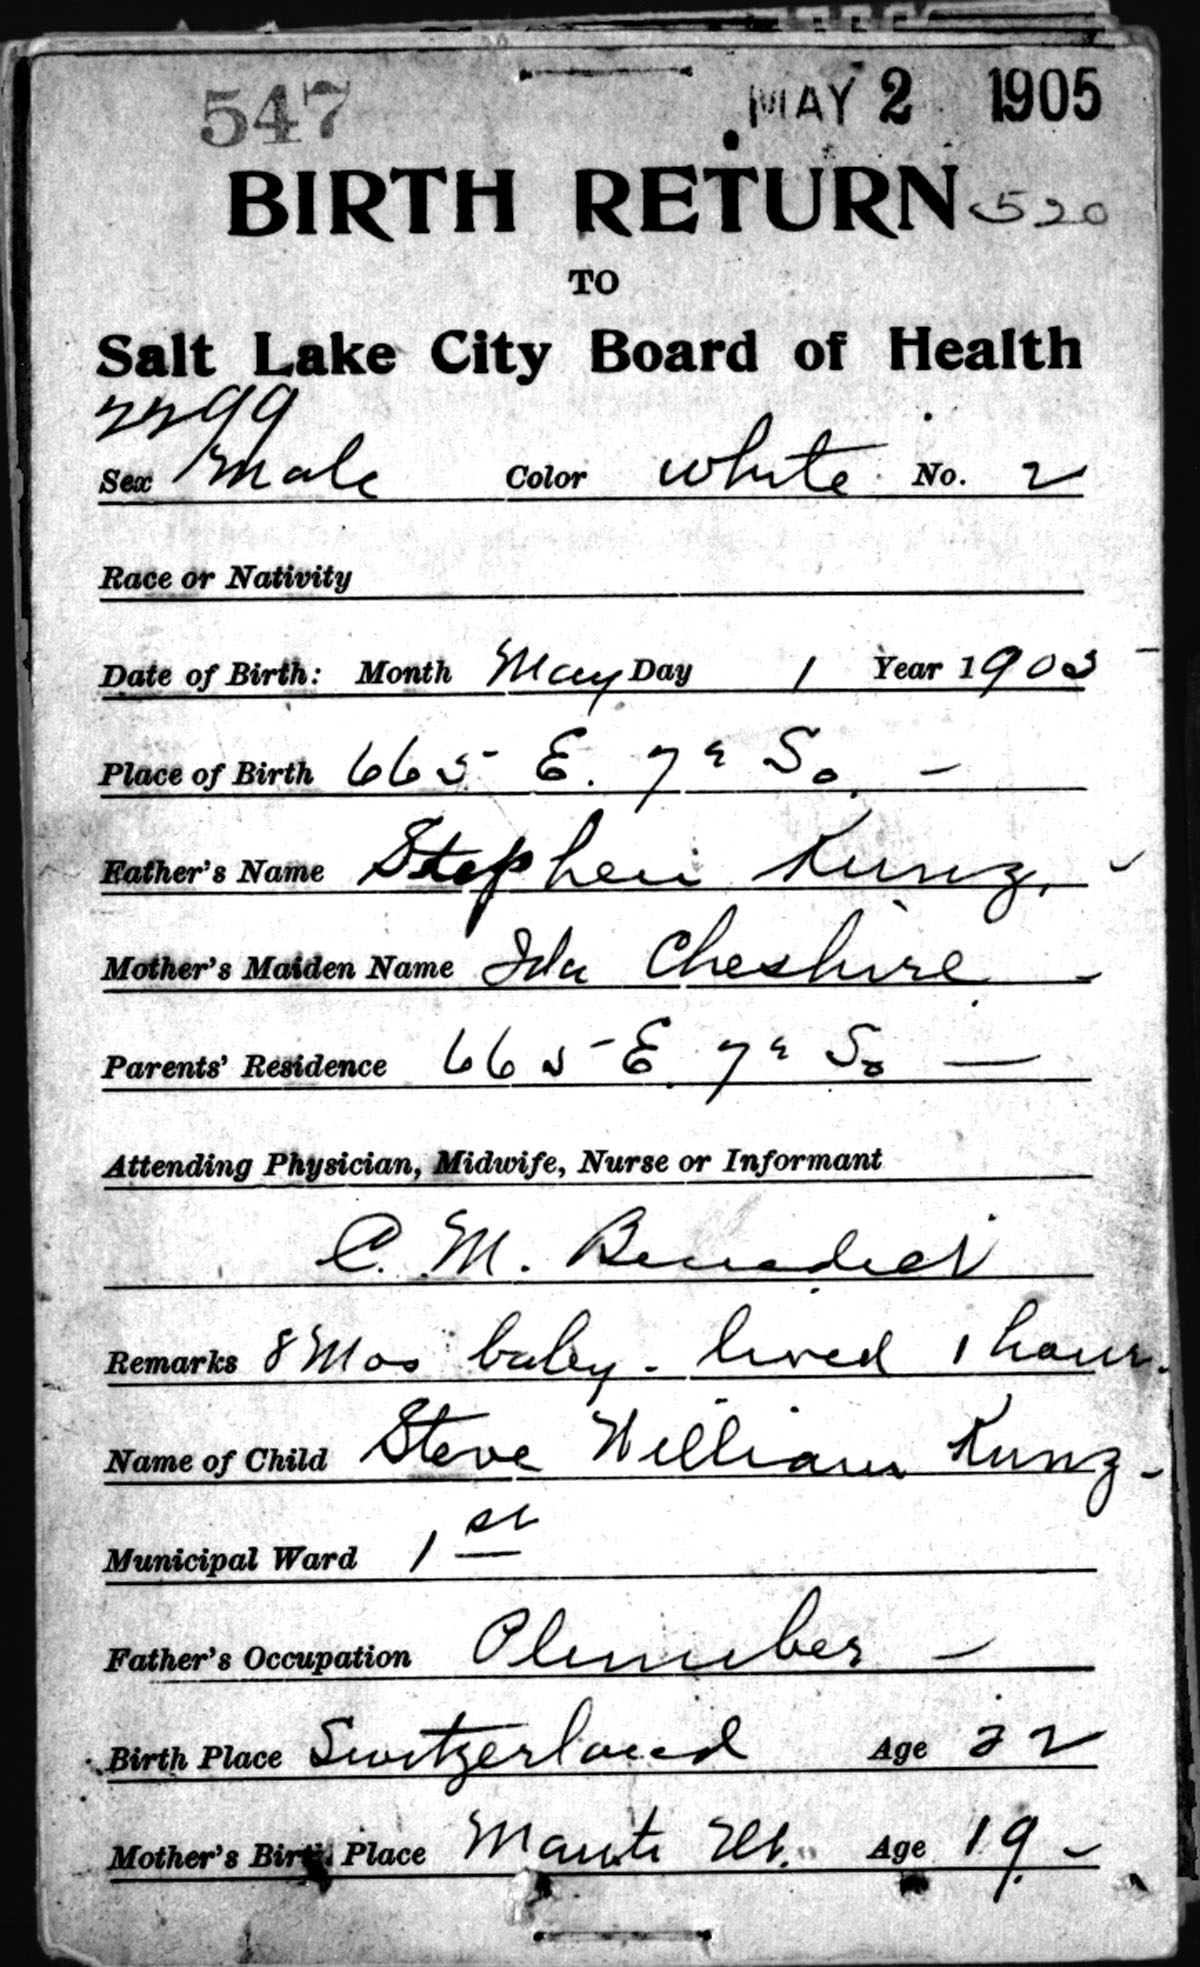 547 MAY 2 1905
BIRTH RETURN 520
TO
Salt Lake City Board of Health
2299
Sex Male Color White No. 2
Race or Nativity
Date of Birth: Month May Day 1 Year 1905
Place of Birth 665 E. 7th So. -
Father's Name Stephen Kunz.
Mother's Maiden Name Ida Cheshire
Parents' Residence 665 E 7th So -
Attending Physician, Midwife, Nurse or Informant
C. M. Benedict
Remarks 8 Mos baby. lived 1 hour.
Name of Child Steve William Kunz -
Municipal Ward 1st
Father's Occupation Plumber -
Birth Place Switzerland Age 22
Mother's Birth Place Manti Ut. Age 19 -